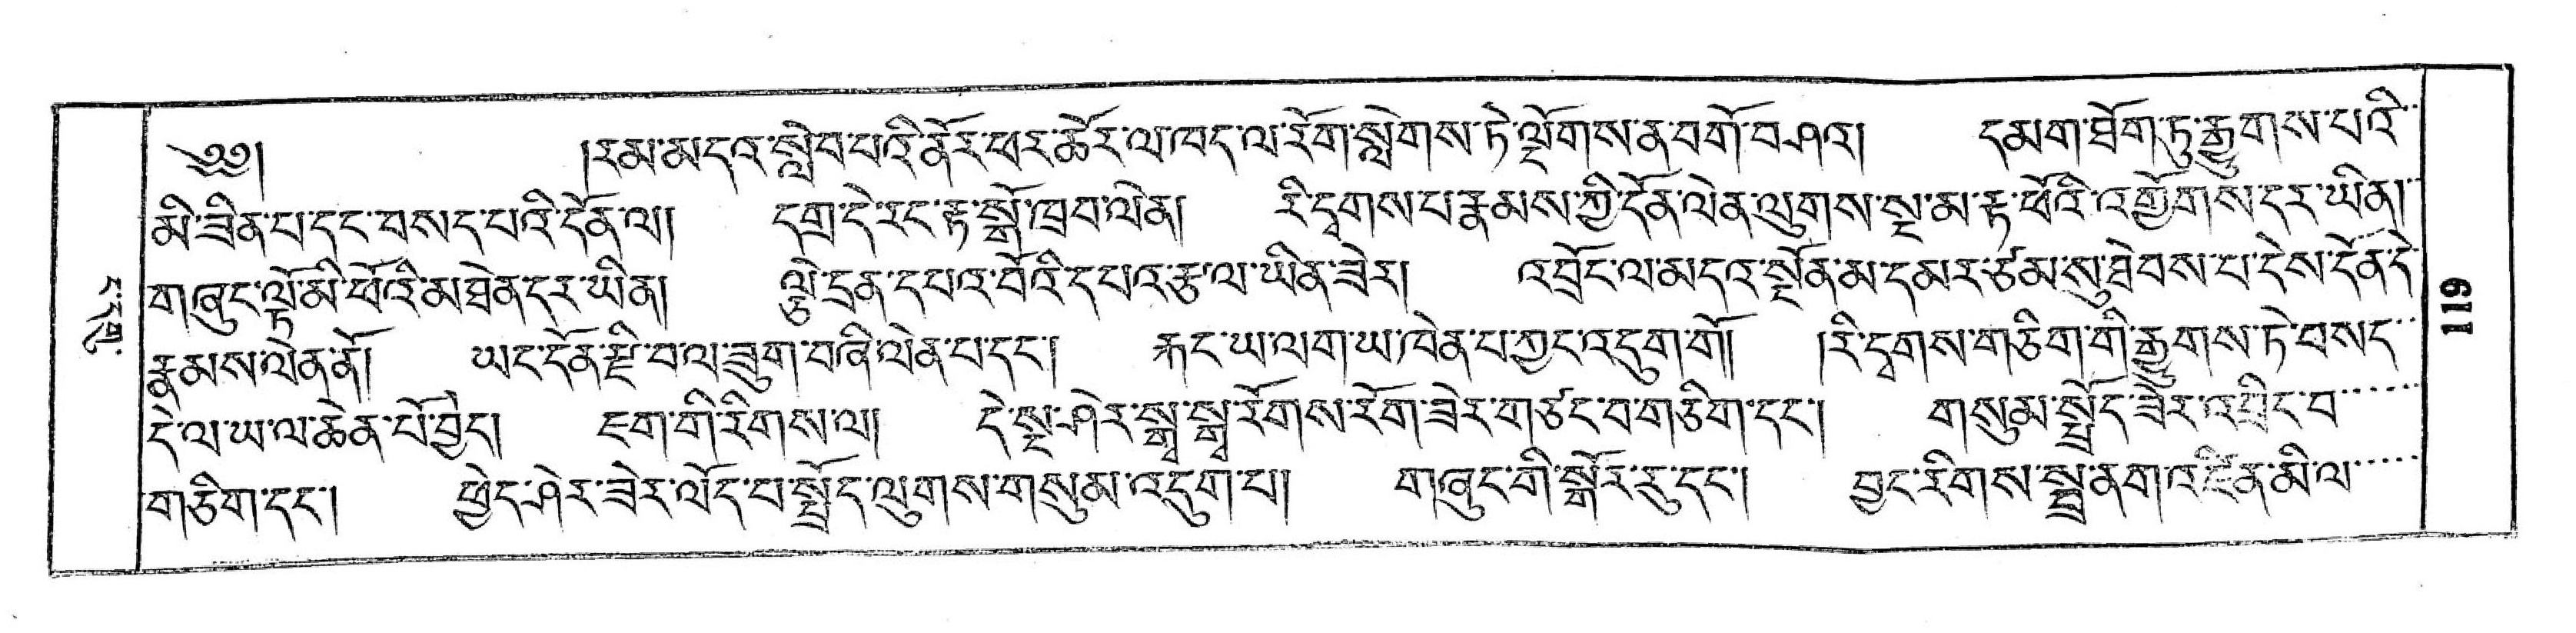 ༄༅། །རམ་མདའ་སླེབ་པའི་ནོར་ཕར་ཚོར་ལ་ཁད་ལ་རོག་སླེགས་ཏེ་ལྡོགས་ན་བགོ་བཤའ། དམག་ཐོག་ཏུ་རྒྱུགས་པའི་
མི་ཟིན་པ་དང་བསད་པའི་དོན་ལ། དགྲ་དེ་རང་རྟ་སྒོ་ཁྲབ་ལེན། རི་དྭགས་པ་རྣམས་ཀྱི་དོན་ལེན་ལུགས་སྔ་མ་རྟ་ཕོའི་འགྱོགས་དར་ཡིན།
གཞུང་ལྟོ་མི་ཕོའི་མཐེན་དར་ཡིན། ལྕེ་དྲན་དཔའ་བོའི་དཔའ་རྩལ་ཡིན་ཟེར། འབྲོང་ལ་མདའ་སྔོན་མ་དམར་ཙམ་སུ་ཐེབས་པ་དེས་དོན་དེ་
རྣམས་ལེན་ནོ། ཡང་དོན་སྔེ་བ་ལ་ཟུག་བཞི་ལེན་པ་དང་། རྐང་ཡ་ལག་ཡ་ཁེན་པ་ཀྱང་འདུག་གོ། །རི་དྭགས་གཅིག་གི་རྒྱུགས་ཏེ་བསད་
དེ་ལ་ཡ་ལ་ཆེན་པོ་བྱེད། ཇག་གི་རིགས་ལ། དེ་སྔ་ཤེར་སྒྭ་སྒྭ་རོགས་རོག་ཟེར་གཙང་བ་གཅིག་དང་། གསུམ་སྤྲོད་ཟེར་འབྲིང་བ་
གཅིག་དང་། ཕྱེད་ཤེར་ཟེར་ལོད་པ་སྤྲོད་ལུགས་གསུམ་འདུག་པ། གཞུང་གི་སྒོར་རུ་དང་། བྱང་རིགས་སྦྲ་ནག་འཛིན་མི་ལ་
119